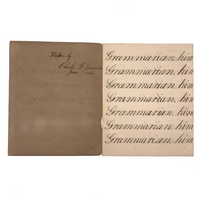 Written by
Grammarian, him
Grammarian, him
Grammarian, him
Grammarian, him
Grammarian, him
Grammarian, him
Grammarian, him